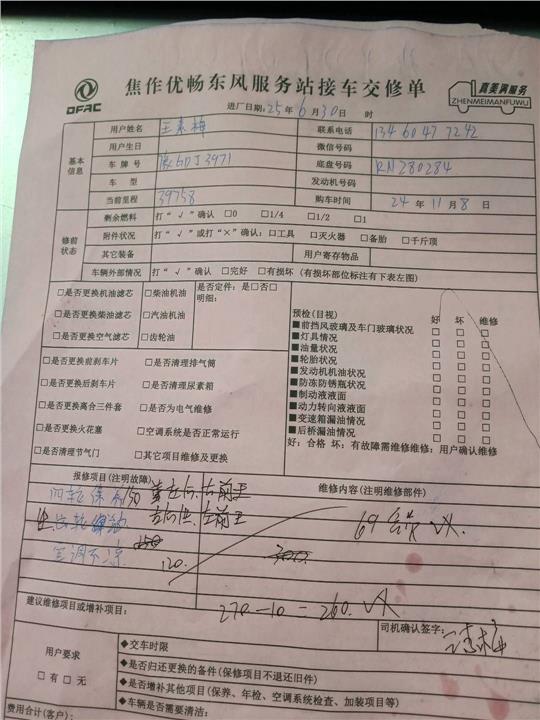 DFAC
焦作优畅东风服务站接车交修单
真美满服务
ZHENMEIMANFUWU
进厂日期:25年6月30日 时
基本信息
用户姓名 王素梅 联系电话 134 6047 7242
用户生日 微信号码
车牌号 3971 底盘号码 RN280284
车型 发动机号码
当前里程 39758 购车时间 24年11月8日
修前状态
剩余燃料 打“√”确认 □0 □1/4 □1/2 □1
附件状况 打“√”或打“×”确认:□工具 □灭火器 □备胎 □千斤顶
其它装备 用户寄存物品
车辆外部情况 打“√”确认 □完好 □有损坏(有损坏部位标注有下表左图)
□是否更换机油滤芯 □柴油机油 是否定件:是□否□
明细:
□是否更换柴油滤芯 □汽油机油
□是否更换空气滤芯 □齿轮油
预检(目视) 好 坏 维修
■前挡风玻璃及车门玻璃状况 □ □ □
■灯具情况 □ □ □
■油量状况 □ □ □
■轮胎状况 □ □ □
■发动机机油状况 □ □ □
■防冻防锈瓶状况 □ □ □
■制动液液面 □ □ □
■动力转向液液面 □ □ □
■变速箱漏油情况 □ □ □
■后桥漏油情况 □ □ □
好:合格 坏:有故障需维修维修:用户确认维修
□是否更换前刹车片 □是否清理排气筒
□是否更换后刹车片 □是否清理尿素箱
□是否更换离合三件套 □是否为电气维修
□是否更换火花塞 □空调系统是否正常运行
□是否清理节气门 □其它项目维修及更换
报修项目(注明故障) 维修内容(注明维修部件)
150
齿轮油
69
空调不凉 250
120. 300
建议维修项目或增补项目: 270-10=260.
司机确认签字:
用户要求
□有 □无
◆交车时限
◆是否归还更换的备件(保修项目不退还旧件)
◆是否增补其他项目(保养、年检、空调系统检查、加装项目等)
◆车辆是否需要清洁:
费用合计(客户):